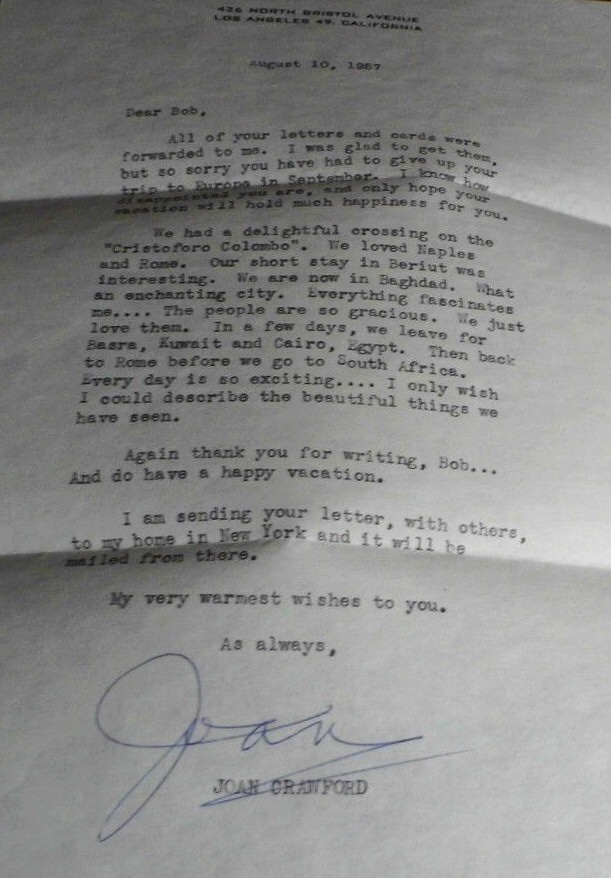 426 NORTH BRISTOL AVENUE
LOS ANGELES 49, CALIFORNIA
August 10, 1957
Dear Bob,
All of your letters and cards were
forwarded to me. I was glad to get them,
but so sorry you have had to give up your
trip to Europe in September. I know how
disappointed you are, and only hope your
vacation will hold much happiness for you.
We had a delightful crossing on the
"Cristoforo Colombo". We loved Naples
and Rome. Our short stay in Beriut was
interesting. We are now in Baghdad. What
an enchanting city. Everything fascinates
me.... The people are so gracious. We just
love them. In a few days, we leave for
Basra, Kuwait and Cairo, Egypt. Then back
to Rome before we go to South Africa.
Every day is so exciting.... I only wish
I could describe the beautiful things we
have seen.
Again thank you for writing, Bob...
And do have a happy vacation.
I am sending your letter, with others,
to my home in New York and it will be
mailed from there.
My very warmest wishes to you.
As always,
Joan
JOAN CRAWFORD